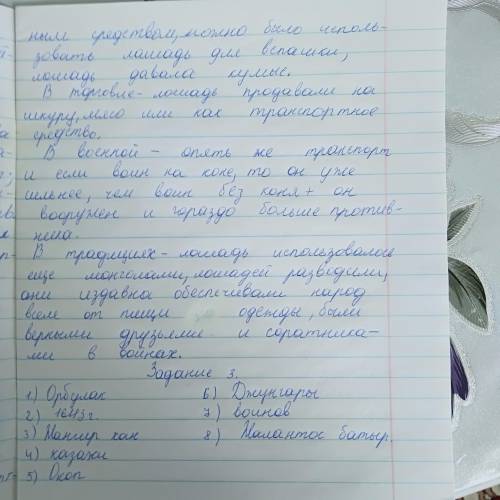 ным средством, можно было исполь-
зовать лошадь для вспашки,
лошадь давала кумыс.
В торговле - лошадь продавали на
шкуру, мясо или как транспортное
средство.
В военной - опять же транспорт
и если воин на коне, то он уже
сильнее, чем воин без коня + он
вооружен и гораздо больше против-
ника.
В традициях - лошадь использовалась
еще монголами, лошадей разводили,
они издавна обеспечивали народ
всем от пищи одежды, были
верными друзьями и соратника-
ми в войнах.
Задание 3.
1) Орбулак
2) 1643 г.
3) Жангир хан
4) казахи
5) Окоп
6) Джунгары
7) воинов
8) Жалантос батыр.